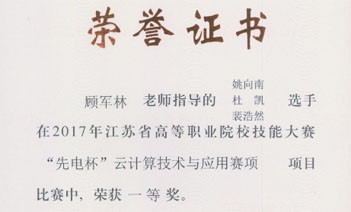 荣誉证书
姚向南
顾军林 老师指导的 杜凯 选手
裴浩然
在2017年江苏省高等职业院校技能大赛
“先电杯”云计算技术与应用赛项 项目
比赛中，荣获一等奖。